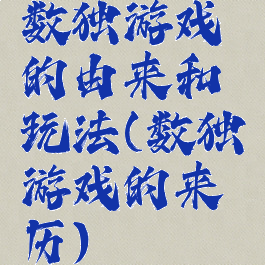 数独游戏
的由来和
玩法(数独
游戏的来
历)